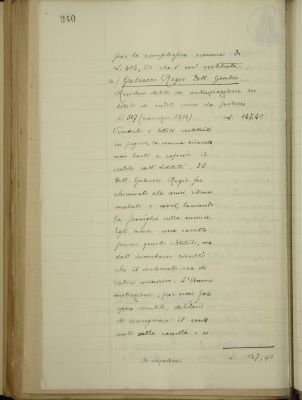 240
per la complessiva somma di
L. 404,50 che è così costituita
a) Galeazzo Regis Dott. Giulio
Residuo debito di anticipazione su
titoli di credito come da polizza
N. 887 (1916). L. 147,40
Venduti i titoli costituiti
in pegno, la somma ricavata
non bastò a coprire il
credito dell'Istituto. Il
Dott. Galeazzo Regis fu
chiamato alle armi,
malato e morì, lasciando
la famiglia nella miseria.
Egli aveva una cassetta
presso questo Istituto, ma
dall'inventario risultò
che il contenuto era di
valore irrisorio. L'Ammi
nistrazione, per non far
spese inutili, deliberò
di consegnare il con
tenuto della cassetta
Da riportare L. 147,40